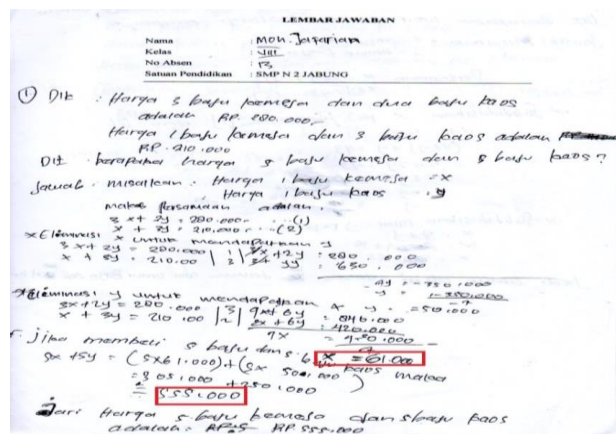 LEMBAR JAWABAN
Nama : Moh. Jafarian
Kelas : VIII
No Absen : 13
Satuan Pendidikan : SMP N 2 JABUNG
① Dik : Harga 3 baju kemeja dan dua baju kaos
adalah RP. 280.000,-
Harga 1 baju kemeja dan 3 baju kaos adalah
RP. 210.000
Dit : berapakah harga 5 baju kemeja dan 5 baju kaos ?
Jawab : misalkan : Harga 1 baju kemeja = x
Harga 1 baju kaos = y
maka persamaan adalah :
3x + 2y = 280.000 ... (1)
x + 3y = 210.000 ... (2)
* Eliminasi x untuk mendapatkan y
3x + 2y = 280.000 | 1 | 3x + 2y = 280.000
x + 3y = 210.00 | 3 | = 630.000
y = 50.000
* Eliminasi y untuk mendapatkan x
3x + 2y = 280.000 | 3 | 9x + 6y = 840.000
x + 3y = 210.00 | 2 | 2x + 6y = 420.000
x = 61.000
jika membeli 5 baju dan 5 kaos maka
5x + 5y = (5x61.000) + (5x 50.000)
= 305.000 + 250.000
= 555.000
Jari Harga 5 baju kemeja dan 5 baju kaos
adalah : RP 555.000